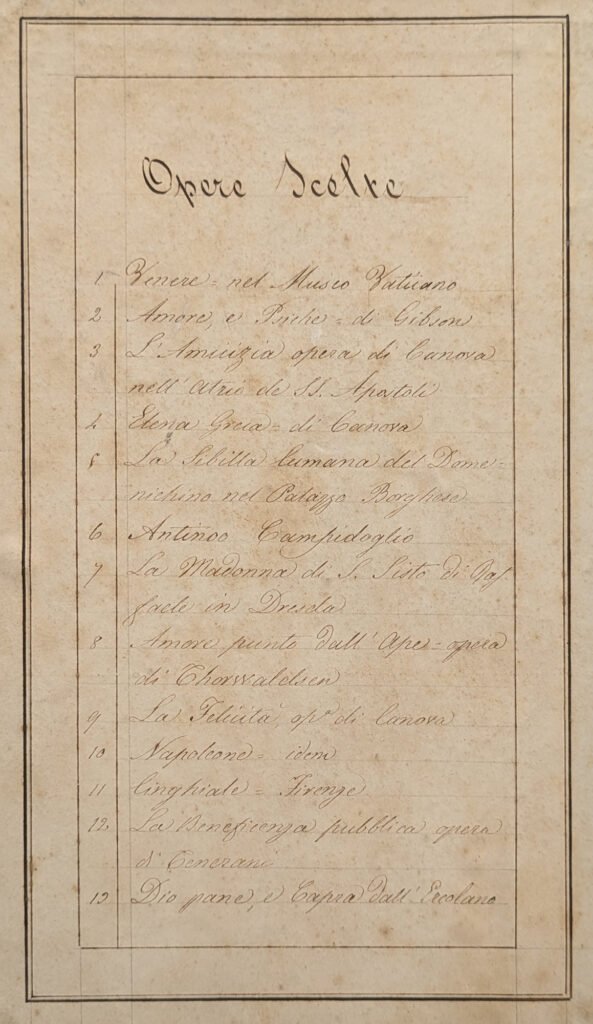 Opere Scelte
1 Venere = nel Museo Vaticano
2 Amore, e Psiche = di Gibson
3 L'Amicizia opera di Canova
nell'atrio de SS. Apostoli
4 Elena Greca = di Canova
5 La Sibilla Cumana del Dome=
nichino nel Palazzo Borghese
6 Antinoo Campidoglio
7 La Madonna di S. Sisto di Raf=
faele in Dresda
8 Amore punto dall'Ape = opera
di Thorwaldsen
9 La Felicità, op.ª di Canova
10 Napoleone = idem
11 Cinghiale = Firenze
12 La Beneficenza pubblica opera
di Tenerani
13 Dio pane, e Capra dall'Ercolano